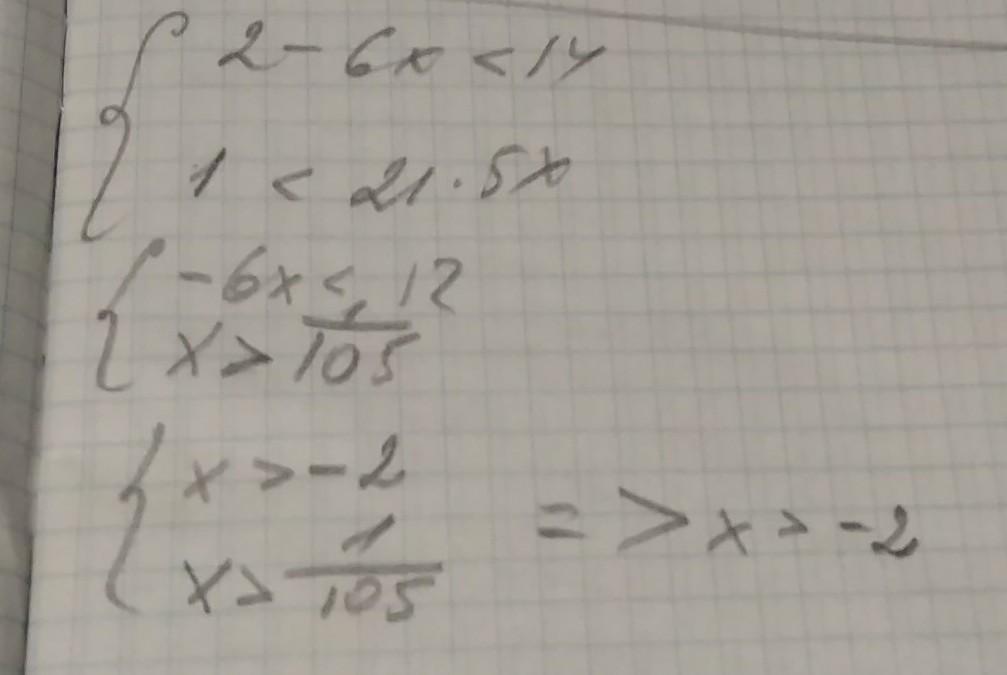 2 - 6x < 14
1 < 21 · 5x
-6x < 12
x > 1/105
x > -2
x > 1/105 => x > -2